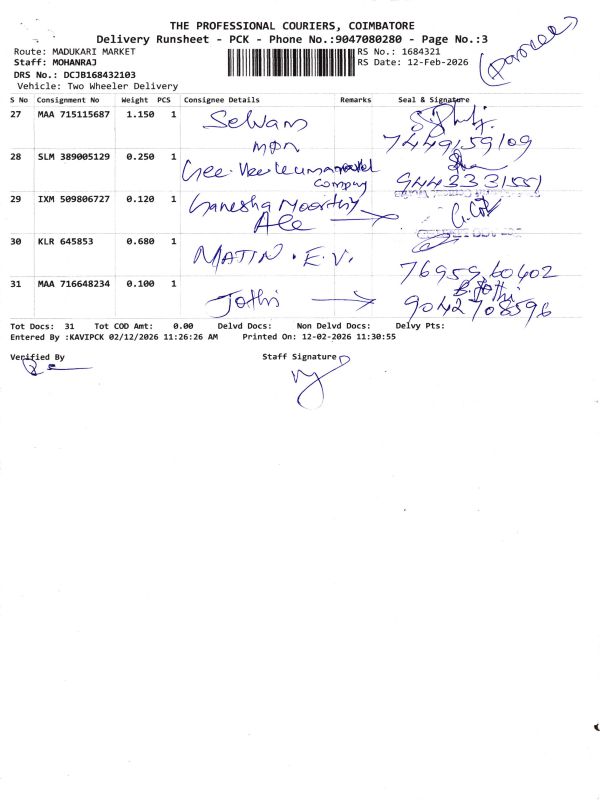 THE PROFESSIONAL COURIERS, COIMBATORE
Delivery Runsheet - PCK - Phone No.:9047080280 - Page No.:3
Route: MADUKARI MARKET
RS No.: 1684321
Staff: MOHANRAJ
RS Date: 12-Feb-2026
DRS No.: DCJB168432103
Vehicle: Two Wheeler Delivery
S No Consignment No Weight PCS Consignee Details Remarks Seal & Signature
27 MAA 715115687 1.150 1 Selvam
7449159109
28 SLM 389005129 0.250 1
company
29 IXM 509806727 0.120 1 Ganesha Moorthy
30 KLR 645853 0.680 1 MATIN. E.V.
7695960402
31 MAA 716648234 0.100 1 Jothi B. Jothi
9042708596
Tot Docs: 31 Tot COD Amt: 0.00 Delvd Docs: Non Delvd Docs: Delvy Pts:
Entered By :KAVIPCK 02/12/2026 11:26:26 AM Printed On: 12-02-2026 11:30:55
Verified By Staff Signature